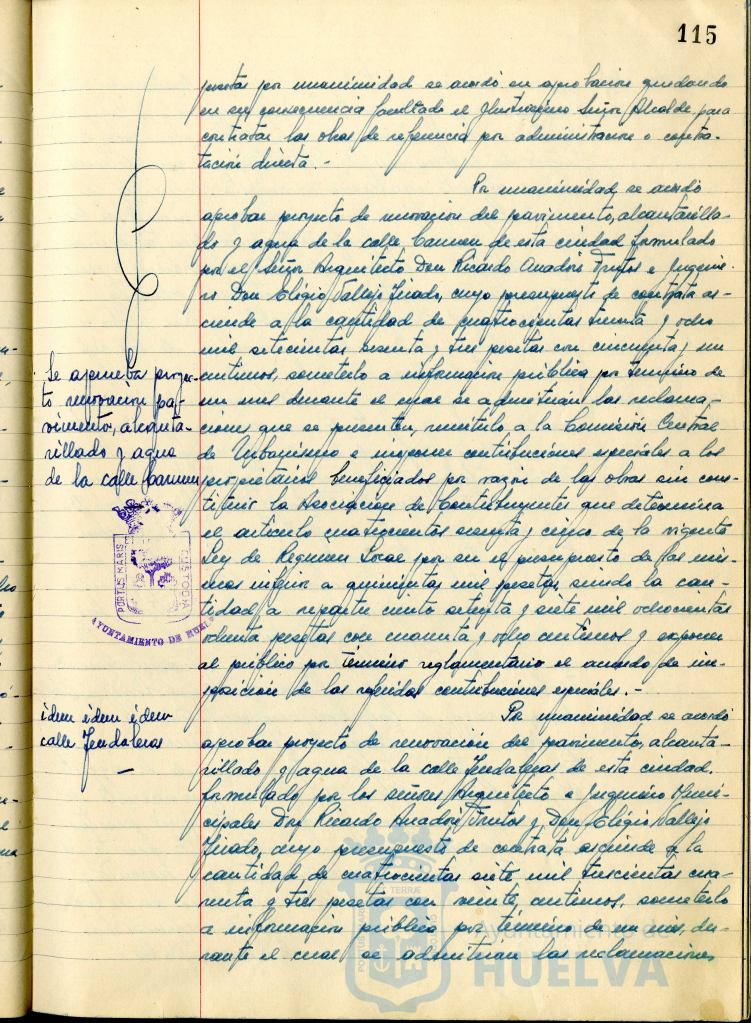 115
puestas por unanimidad se acordó su aprobacion quedando
en su consecuencia facultado el Ilustrisimo Señor Alcalde para
contratar las obras de referencia por administracion o contra-
tación directa.-
Por unanimidad se acordó
aprobar proyecto de renovacion del pavimento, alcantarilla-
do y agua de la calle Carmen de esta ciudad formulado
por el Señor Arquitecto Don Ricardo Anadón Frutos e Ingenie-
ro Don Eligio Vallejo Tirado, cuyo presupuesto de contrata as-
ciende a la cantidad de cuatrocientas treinta y ocho
mil setecientas sesenta y tres pesetas con cincuenta y un
centimos, someterlo a informacion pública por termino de
un mes durante el cual se admitirian las reclama-
ciones que se presenten, remitirlo a la Comisión Central
de Urbanismo e imponer contribuciones especiales a los
propietarios beneficiados por razon de las obras sin cons-
tituir la Asociacion de Contribuyentes que determina
el articulo cuatrocientos sesenta y cinco de la vigente
Ley de Regimen Local por ser el presupuesto de las mis-
mas inferior a quinientas mil pesetas, siendo la can-
tidad a repartir ciento setenta y siete mil ochocientas
ochenta pesetas con cuarenta y ocho centimos y exponer
al público por término reglamentario el acuerdo de im-
posición de las referidas contribuciones especiales.-
Se aprueba proyec-
to renovacion pa-
vimento, alcanta-
rillado y agua
de la calle Carmen
PORTUS MARIS
CUSTODIA
AYUNTAMIENTO DE HUELVA
Por unanimidad se acordó
aprobar proyecto de renovación del pavimento, alcanta-
rillado y agua de la calle Tendaleras de esta ciudad,
formulado por los señores Arquitecto e Ingeniero Muni-
cipales Don Ricardo Anadón Frutos y Don Eligio Vallejo
Tirado, cuyo presupuesto de contrata asciende a la
cantidad de cuatrocientas siete mil trescientas cua-
renta y tres pesetas con veinte centimos, someterlo
a informacion pública por término de un mes, du-
rante el cual se admitirian las reclamaciones
idem idem idem
calle Tendaleras
Ayuntamiento de
HUELVA